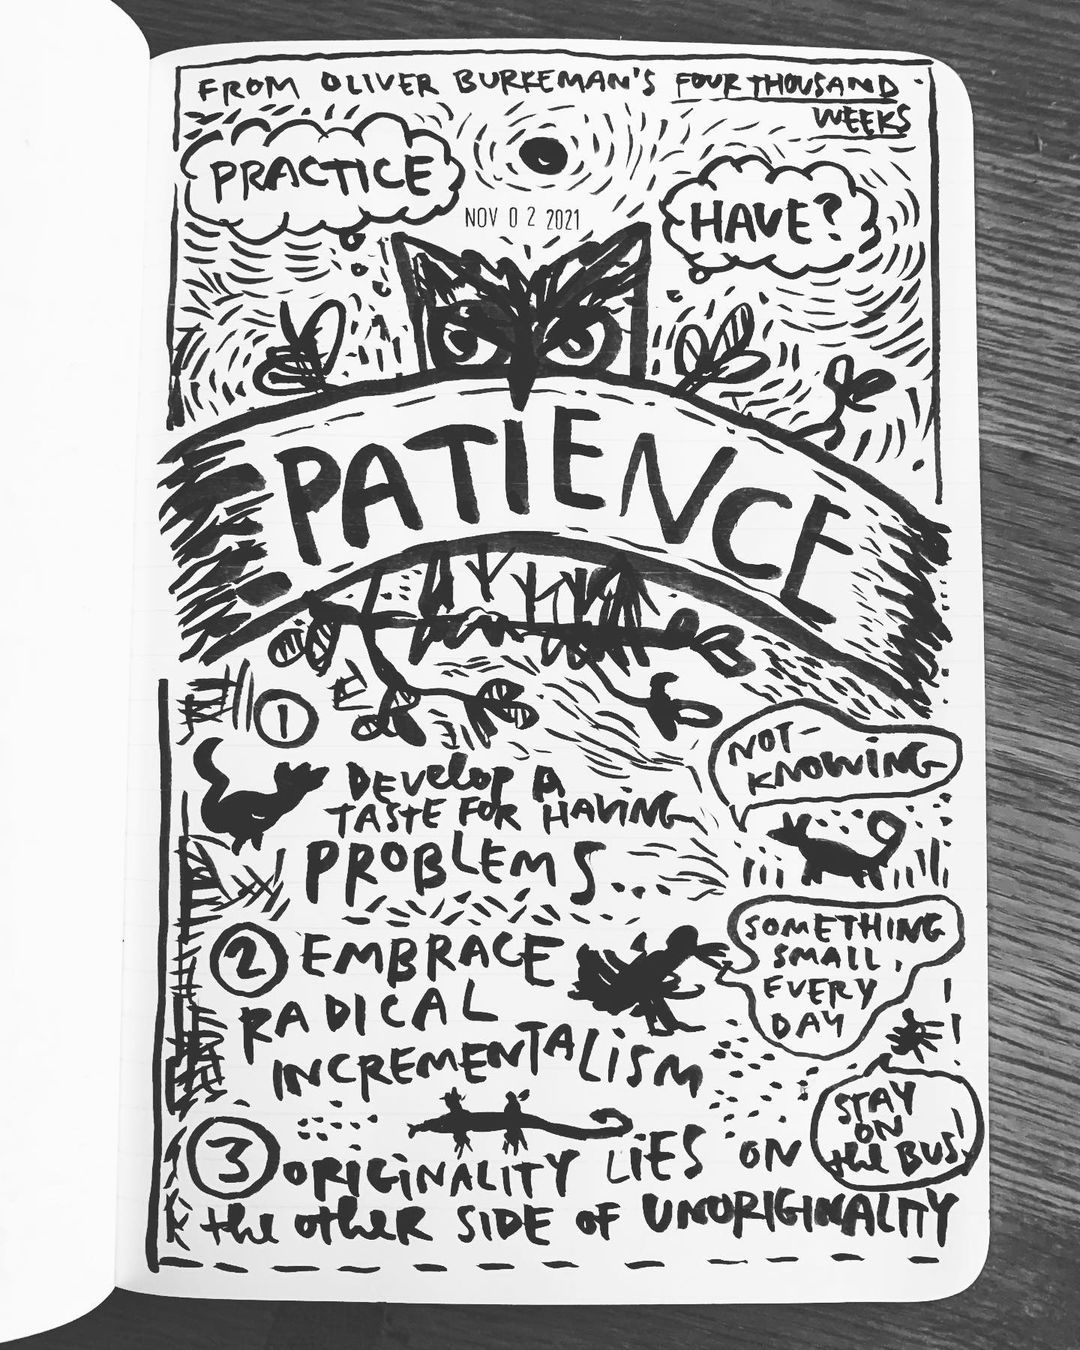 FROM OLIVER BURKEMAN'S FOUR THOUSAND
WEEKS
PRACTICE
HAVE?
NOV 02 2021
PATIENCE
1
DEVELOP A
TASTE FOR HAVING
PROBLEMS...
NOT-
KNOWING
2 EMBRACE
RADICAL
INCREMENTALISM
SOMETHING
SMALL,
EVERY
DAY
3 ORIGINALITY LIES ON
the otheR SIDE OF UNORIGINALITY
STAY
ON
the BUS!